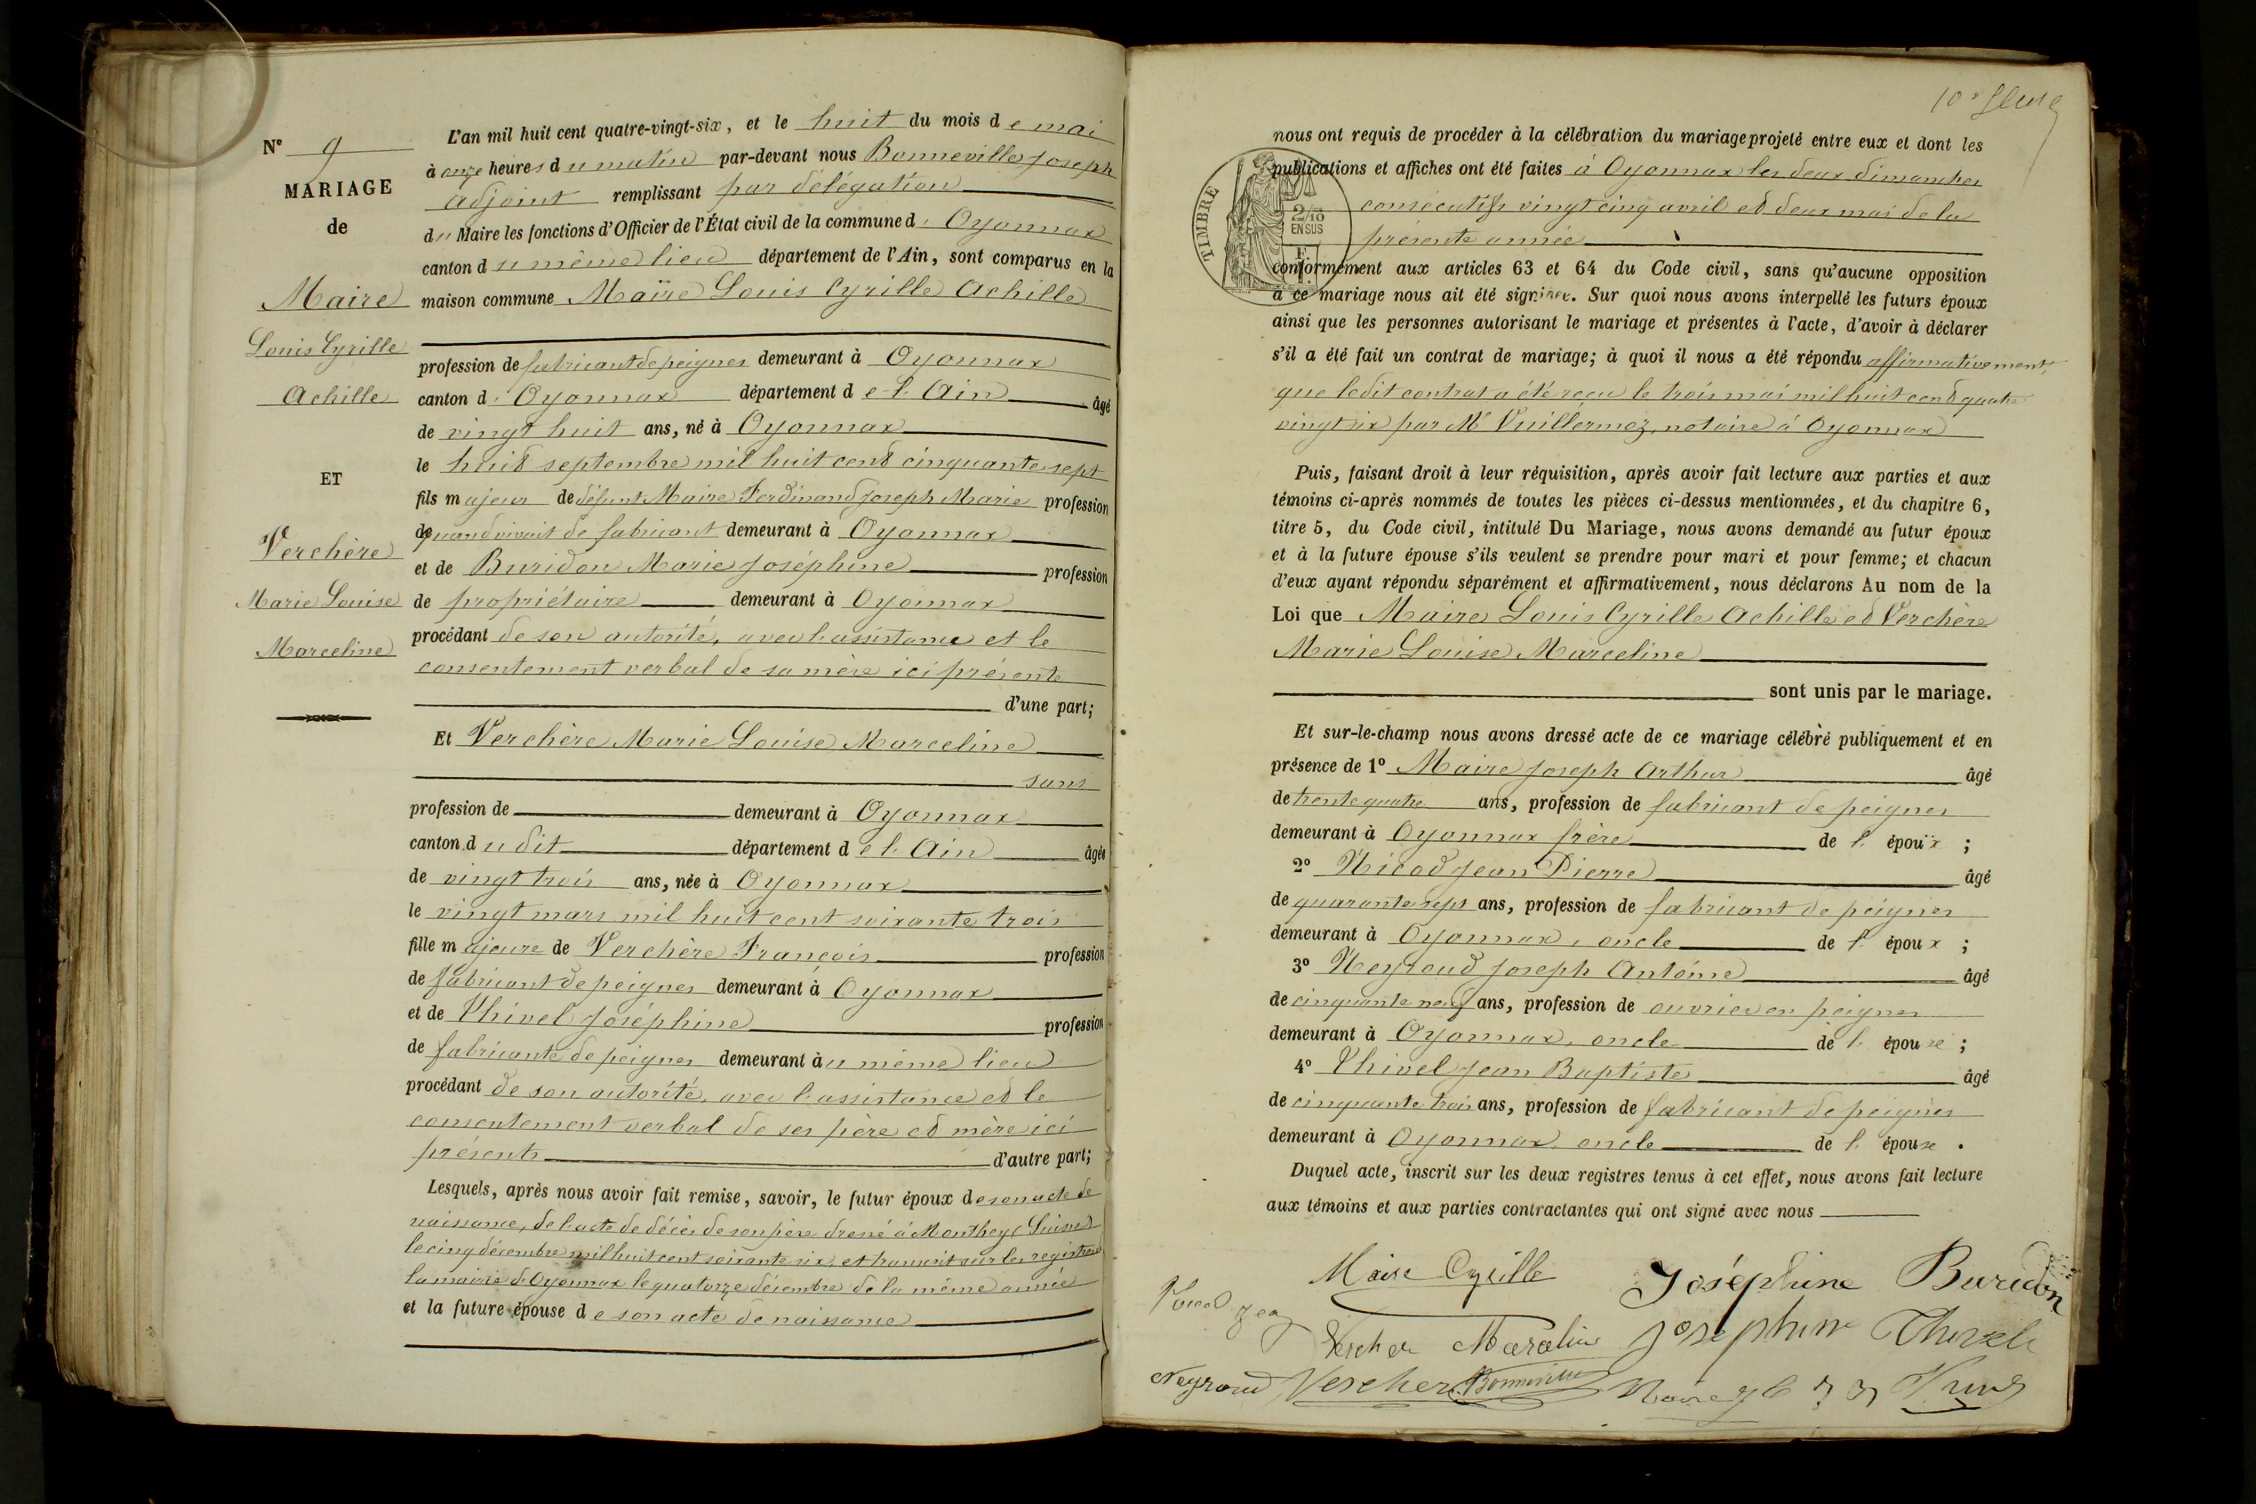 N° 9
MARIAGE
de
Maire
Louis Cyrille
Achille
ET
Verchère
Marie Louise
Marceline
L'an mil huit cent quatre-vingt-six, et le huit du mois de mai
à onze heures du matin par-devant nous Bonneville Joseph
adjoint remplissant par délégation
du Maire les fonctions d'Officier de l'État civil de la commune d' Oyonnax
canton du même lieu département de l'Ain, sont comparus en la
maison commune Maire Louis Cyrille Achille
profession de fabricant de peignes demeurant à Oyonnax
canton d' Oyonnax département de l'Ain âgé
de vingt huit ans, né à Oyonnax
le huit septembre mil huit cent cinquante sept
fils majeur de défunt Maire Ferdinand Joseph Marie profession
de quand vivait de fabricant demeurant à Oyonnax
et de Buridon Marie Joséphine profession
de propriétaire demeurant à Oyonnax
procédant de son autorité, avec l'assistance et le
consentement verbal de sa mère ici présente
d'une part;
Et Verchère Marie Louise Marceline
sans
profession de demeurant à Oyonnax
canton dudit département de l'Ain âgée
de vingt trois ans, née à Oyonnax
le vingt mars mil huit cent soixante trois
fille majeure de Verchère François profession
de fabricant de peignes demeurant à Oyonnax
et de Thivel Joséphine profession
de fabricante de peignes demeurant au même lieu
procédant de son autorité, avec l'assistance et le
consentement verbal de ses père et mère ici
présents d'autre part;
Lesquels, après nous avoir fait remise, savoir, le futur époux de son acte de
naissance, de l'acte de décès de son père dressé à Monthey (Suisse)
le cinq décembre mil huit cent soixante six, et transcrit sur les registres de
la mairie d'Oyonnax le quatorze décembre de la même année
et la future épouse de son acte de naissance
nous ont requis de procéder à la célébration du mariage projeté entre eux et dont les
publications et affiches ont été faites à Oyonnax les deux dimanches
consécutifs vingt cinq avril et deux mai de la
présente année
TIMBRE
2/10
EN SUS
conformément aux articles 63 et 64 du Code civil, sans qu'aucune opposition
à ce mariage nous ait été signifiée. Sur quoi nous avons interpellé les futurs époux
ainsi que les personnes autorisant le mariage et présentes à l'acte, d'avoir à déclarer
s'il a été fait un contrat de mariage; à quoi il nous a été répondu affirmativement,
que ledit contrat a été reçu le trois mai mil huit cent quatre
vingt six par Me Vuillermoz, notaire à Oyonnax
Puis, faisant droit à leur réquisition, après avoir fait lecture aux parties et aux
témoins ci-après nommés de toutes les pièces ci-dessus mentionnées, et du chapitre 6,
titre 5, du Code civil, intitulé Du Mariage, nous avons demandé au futur époux
et à la future épouse s'ils veulent se prendre pour mari et pour femme; et chacun
d'eux ayant répondu séparément et affirmativement, nous déclarons Au nom de la
Loi que Maire Louis Cyrille Achille et Verchère
Marie Louise Marceline
sont unis par le mariage.
Et sur-le-champ nous avons dressé acte de ce mariage célébré publiquement et en
présence de 1° Maire Joseph Arthur âgé
de trente quatre ans, profession de fabricant de peignes
demeurant à Oyonnax frère de l'époux ;
2° Nicod Jean Pierre âgé
de quarante sept ans, profession de fabricant de peignes
demeurant à Oyonnax, oncle de l'époux ;
3° Neyroud Joseph Antoine âgé
de cinquante neuf ans, profession de ouvrier en peignes
demeurant à Oyonnax, oncle de l'épouse ;
4° Thivel Jean Baptiste âgé
de cinquante trois ans, profession de fabricant de peignes
demeurant à Oyonnax, oncle de l'épouse .
Duquel acte, inscrit sur les deux registres tenus à cet effet, nous avons fait lecture
aux témoins et aux parties contractantes qui ont signé avec nous
Maire Cyrille Joséphine Buridon
Vercher Marceline Josephine Thivele
Neyroud Vercher Bonneville